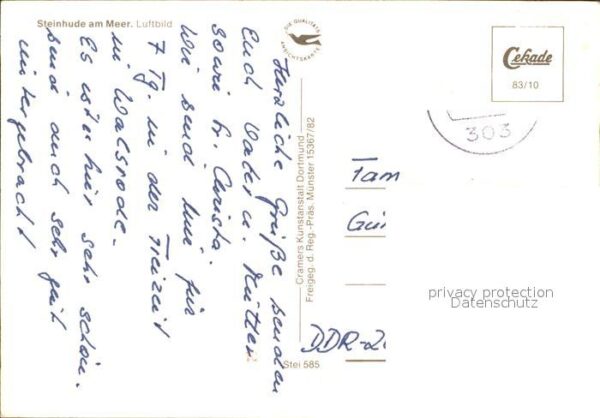 Steinhude am Meer. Luftbild
DIE QUALITÄTS
ANSICHTSKARTE
Cekade
83/10
303
Herzliche Grüße senden
Euch Vater u. Mutter
sowie Fr. Christa.
Wir sind hier für
7 Tg. in der Freizeit
in Walsrode.
Es ist hier sehr schön.
sind auch sehr gut
untergebracht
Cramers Kunstanstalt Dortmund
Freigeg. d. Reg.-Präs. Münster 15367/82
Stei 585
Fam
Gün
DDR-2
privacy protection
Datenschutz